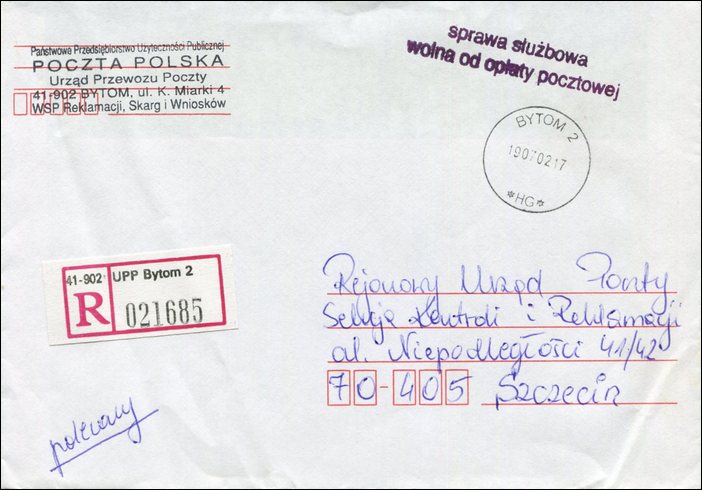 Państwowe Przedsiębiorstwo Użyteczności Publicznej
POCZTA POLSKA
Urząd Przewozu Poczty
41-902 BYTOM, ul. K. Miarki 4
WSP Reklamacji, Skarg i Wniosków
sprawa służbowa
wolna od opłaty pocztowej
BYTOM 2
19070217
*HG*
41-902 UPP Bytom 2
R 021685
Rejonowy Urząd Poczty
Sekcja Kontroli i Reklamacji
al. Niepodległości 41/42
70-405 Szczecin
polecony